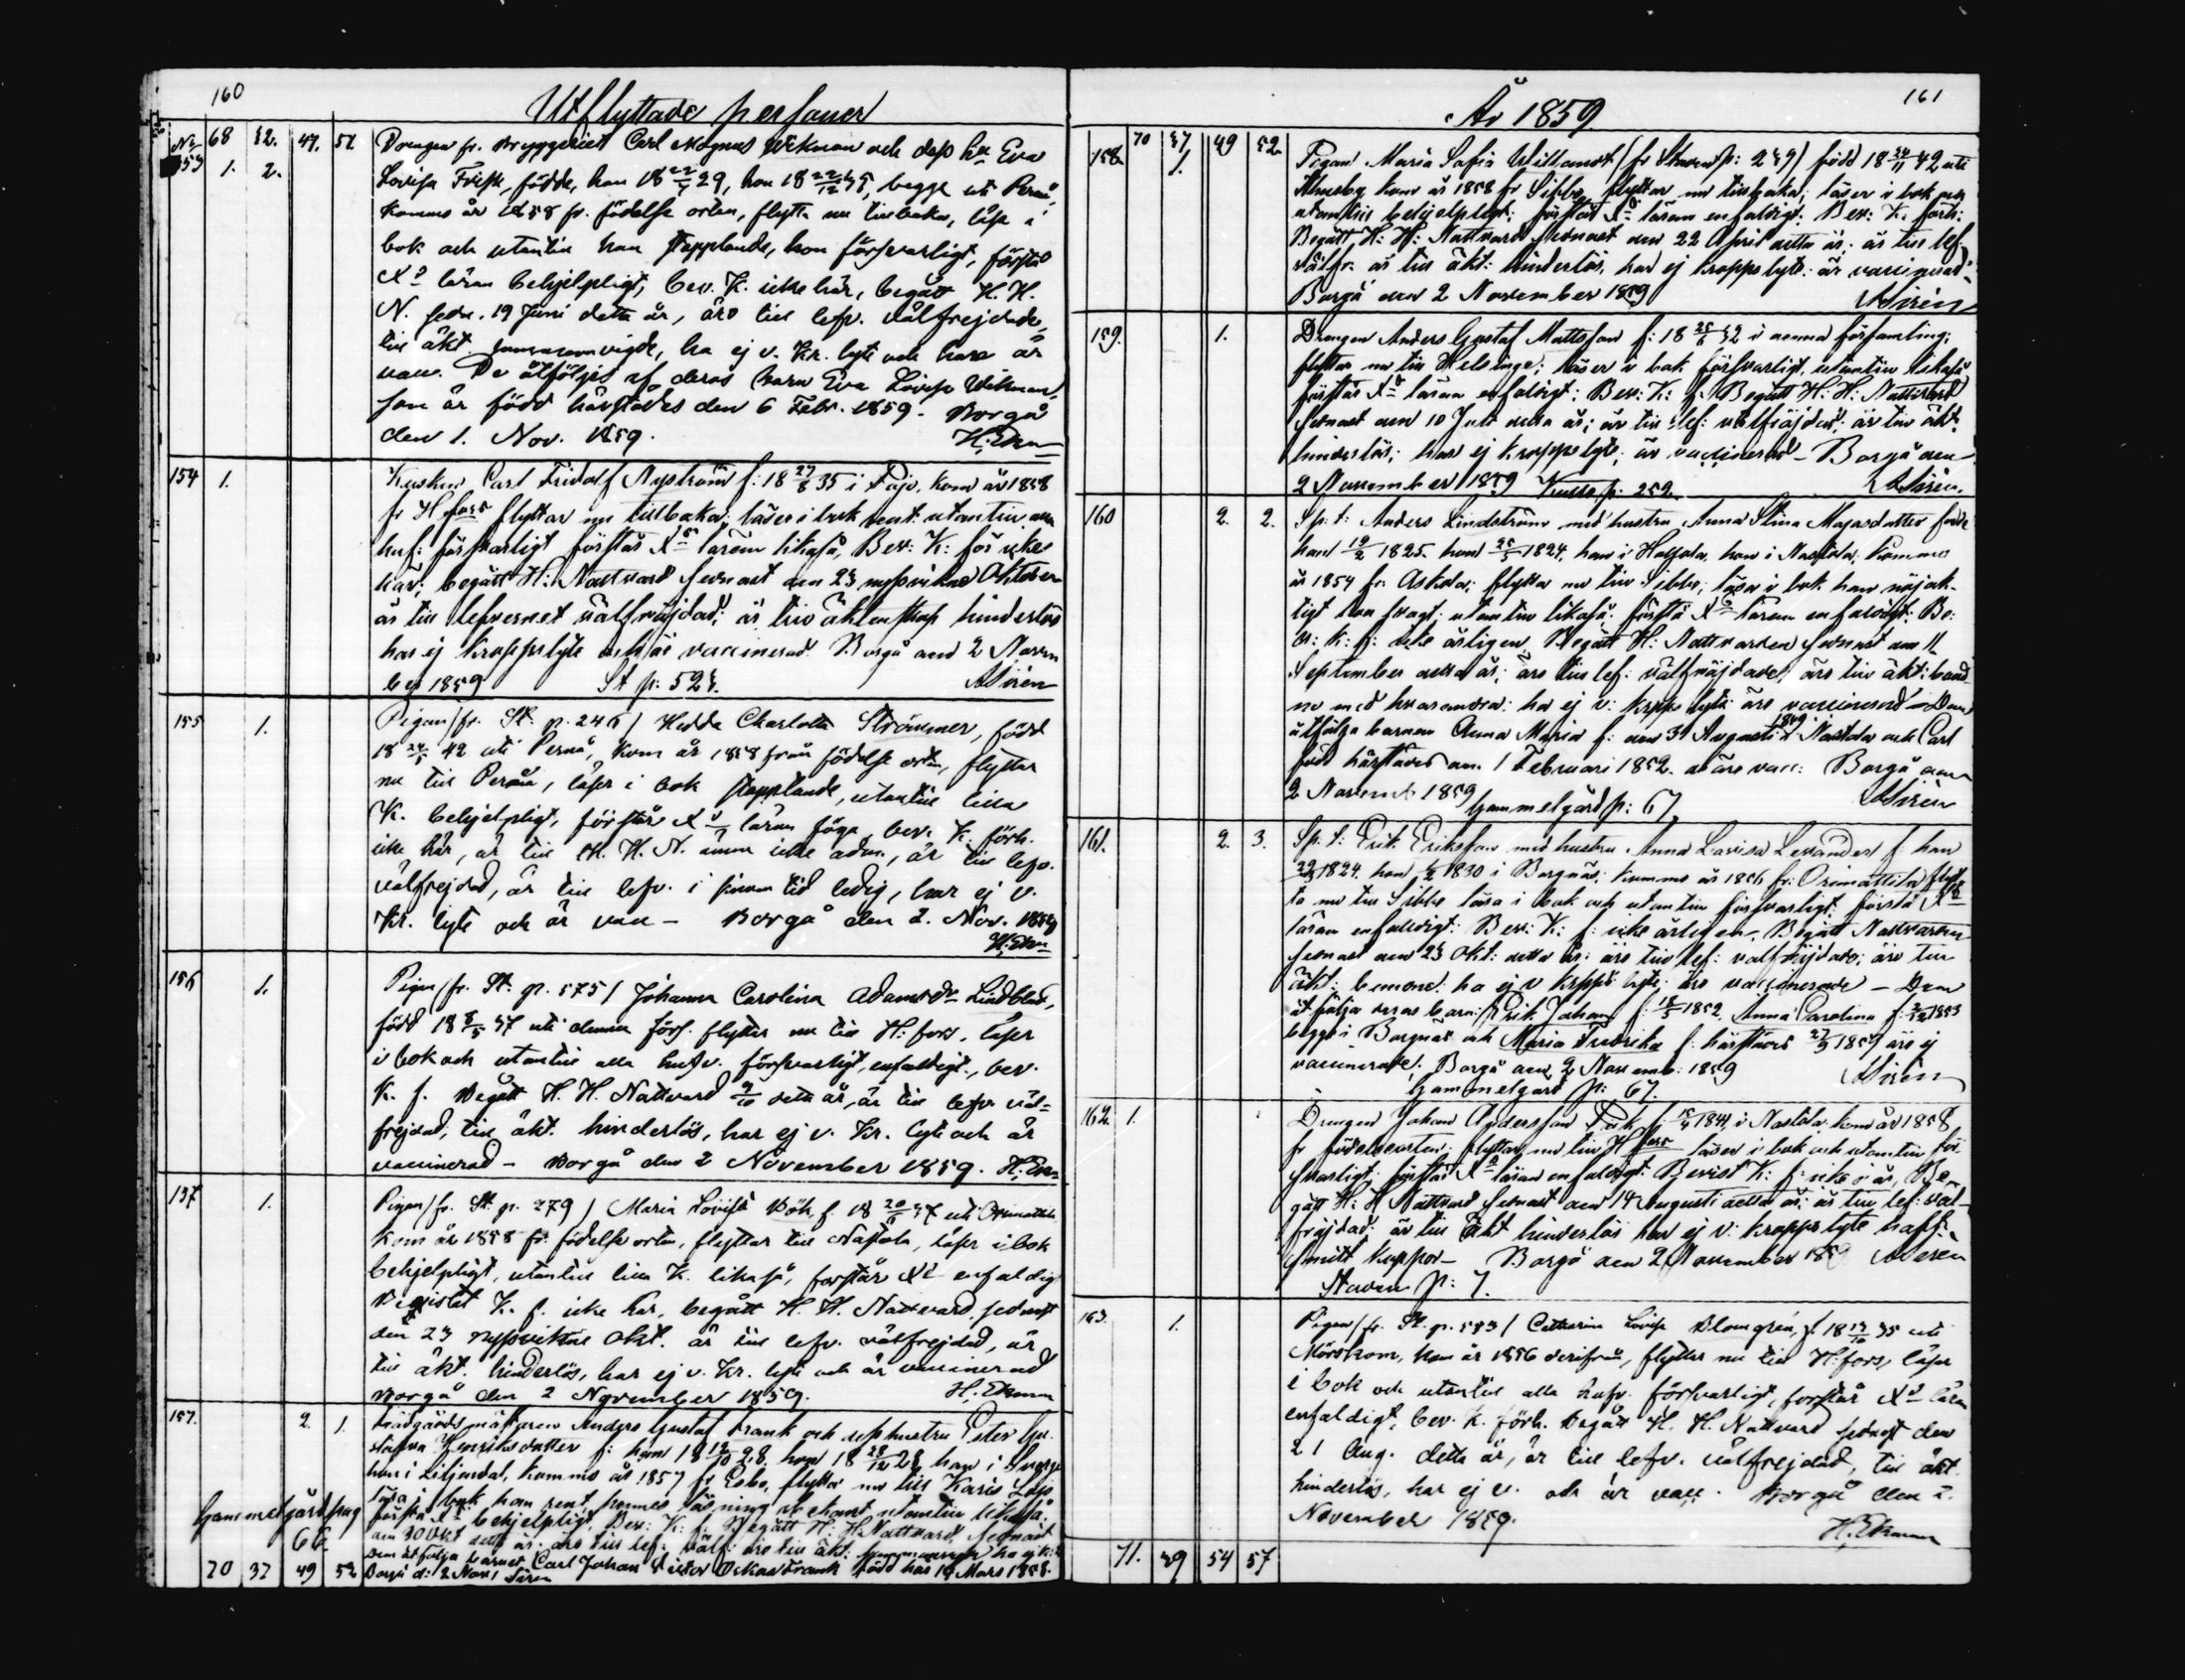 160
Utflyttade personer
No 68 32. 47. 51
153 1. 2. Drengen fr. Bryggeriet Carl Magnus Wikman och dess hu Eva
Lovisa Frisk, födde, han 18 29, hon 18 35, begge uti Perno,
komne år 1858 fr. födelse orten, flytta nu tillbaka, läsa i
bok och utantill han stapplande, hon försvarligt, förstå
Xs läran behjelpligt, bev. K. icke här, begått H. H.
N. sedn. 19 Juni detta år, äro till lefv. välfrejdade,
till äkt sammanvigde, ha ej v. Kr. lyte och hare är
vacc. De åtföljes af deras barn Eva Lovisa Wikman,
som är född härstädes den 6 Febr. 1859. Borgå
den 1. Nov. 1859. H. Ekm
154 1. Kusken Carl Fridolf Nyström f: 18 27/8 35 i Pojo. kom år 1858
fr Hfors flyttar nu tillbaka; läser i bok rent utantill alla
huf: försvarligt förstår Xs läran likaså, Bev: K: för icke
här; begått H: Nattvard sednast den 23 nyssvikne Oktober
är till lefvernet välfräjdad; är till äktenskap hinderlös
har ej kroppslyte och är vaccinerad. Borgå den 2 Novem
ber 1859 St p: 525. A Sirén
155 1. Pigan /fr. St. p. 246/ Hedda Charlotta Strömmer, född
18 42 uti Perno, kom år 1858 från födelse orten, flyttar
nu till Perno, läser i bok stapplande, utantill lilla
K. behjelpligt, förstår Xs läran föga, bev. K. förh.
icke här, är till H. H. N. ännu icke adm., är till lefv.
välfrejdad, är till lefv. i sinom tid ledig, har ej v.
Kr. lyte och är vacc – Borgå den 2. Nov. 1859
H. Ekm
156 1. Pigan /fr. St. p. 575/ Johanna Carolina Adamsdr Lindblad,
född 18 8/5 37 uti denna förs. flyttar nu till H:fors, läser
i bok och utantill alla hufv. försvarligt, enfaldigt, bev.
K. f. Begått H. H. Nattvard 9/10 detta år, är till lefv väl=
frejdad, till äkt. hinderlös, har ej v. Kr. lyte och är
vaccinerad – Borgå den 2 November 1859. H. Ekm
157 1. Pigan /fr. St. p. 279/ Maria Lovisa Böh f. 18 37 uti Orimattila
kom år 1858 fr. födelse orten, flyttar till Nastola, läser i bok
behjelpligt, utantill lilla K. likaså, förstår Xs enfaldig
Bevistat K. f. icke här, begått H. H. Nattvard sednast
den 23 nyssvikne Okt. är till lefv. välfrejdad, är
till äkt. hinderlös, har ej v. Kr. lyte och är vaccinerad
Borgå den 2 November 1859. H. Ekman
157. 2. 1. Trädgårdsmästaren Anders Gustaf Frank och dess hustru Ester Gu
stafva Henriksdotter f: han 18 19/10 28. hon 18 28/12 28 han i Sverge
hon i Liljendal, komne år 1857 fr Esbo, flyttar nu till Karis Lojo
läsa i bok han rent, hennes läsning obekant, utantill likaså.
förstå Xs behjelpligt, Bev: K: f: Begått H: H. Nattvard sednast
den 30 Okt detta år: äro till lef: välf: äro till äkt: ha ej
Dem åtfölja barnet Carl Johan Victor Oskar Frank född här 14 Mars 1858.
Gammelgård pag 66
Borgå d: 2 Nov: Sirén
70 37 49 52
År 1859.
161
70 37 49 52
158. 1. Pigan Maria Sofia Willandt /fr Staren p: 239/ född 18 24/11 42 uti
kom år 1858 fr Sibbo, flyttar nu tillbaka; läser i bok och
utantill behjelpligt; förstår Xs läran enfaldigt. Bev: K: förh:
Begått H: H: Nattvard sednast den 22 April detta år; är till lef:
välfr. är till äkt: hinderlös, har ej kroppslyte: är vaccinerad
Borgå den 2 November 1859 A Sirén
159. 1. Drengen Anders Gustaf Mattsson f: 18 32 i denna församling;
flyttar nu till Helsinge; läser i bok försvarligt, utantill likaså
förstår Xs läran enfaldigt: Bev: K: f. Begått H: H: Nattvard
sednast den 10 Juli detta år; är till lef: välfräjdad; är till äkt
hinderlös; har ej kroppslyte; är vaccinerad – Borgå den
2 November 1859 p: 252 A Sirén.
160 2. 2. Sp: t: Anders Lindström med hustru Anna Stina Majasdotter födde
han 19/2 1825. hon 25/5 1824. han i Hattula, hon i Nastola; komne
år 1854 fr: Askola; flytta nu till Sibbo; läsa i bok han nöjak-
tigt hon svagt; utantill likaså. förstå Xs läran enfaldigt: Be:
v: K: f: icke årligen Begått H: Nattvarden sednast den 11
September detta år; äro till lef: välfräjdade; äro till äkt: bund
ne med hvarandra: ha ej v: krpps lyte; äro vaccinerad – Dem
åtfölja barnen Anna Maria f: den 31 Augusti 1849 i Nastola och Carl
född härstädes den 1 Februari 1852. äro vacc: Borgå den
2 Novemb 1859 Gammelgård p: 67 A Sirén
161. 2. 3. Sp. t: Erik Eriksson med hustru Anna Lovisa Levander f han
1824. hon 1830 i Borgnäs; komne år 1856 fr: Orimattila flyt
ta nu till Sibbo läsa i bok och utantill försvarligt; förstå Xs
läran enfaldigt: Bev: K: f: icke årligen. Begått Nattvarden
sednast den 23 Okt: detta år: äro till lef: välfräjdade; äro till
äkt: bundne: ha ej v krpps lyte; äro vaccinerade – Dem
åtfölja deras barn: Erik Johan f: 18/5 1852 Anna Carolina f: 1853
begge i Borgnäs och Maria Fredrika f. härstädes 27/9 1857 äro ej
vaccinerade; Borgå den 2 Novemb: 1859 A Sirén
Gammelgård p: 67.
162. 1. Drengen Johan Andersson f: 1841, i Nastola. kom år 1858
fr födelseorten; flyttar nu till Hfors läser i bok och utantill för
svarligt, förstår Xs läran enfaldigt: Bevist K: f: icke i år, Be-
gått H: H Nattvard sednast den 14 Augusti detta år; är till lef: väl-
fräjdad; är till äkt hinderlös har ej v: kroppslyte haft
smitt koppor – Borgå den 2 November 1859 A Sirén
Staren p: 7.
163. 1. Pigan /fr. St. p. 583/ Catharina Lovisa Blomgrén, f. 18 35 uti
Mörskom, kom år 1856 derifrån, flyttar nu till H:fors, läser
i bok och utantill alla hufv. försvarligt, förstår Xs läran
enfaldigt, bev. K. förh. begått H. H. Nattvard sednast den
21 Aug. detta år, är till lefv. välfrejdad, till äkt
hinderlös, har ej v. och är vacc. Borgå den 2.
November 1859. H. Ekman
71. 39 54 57